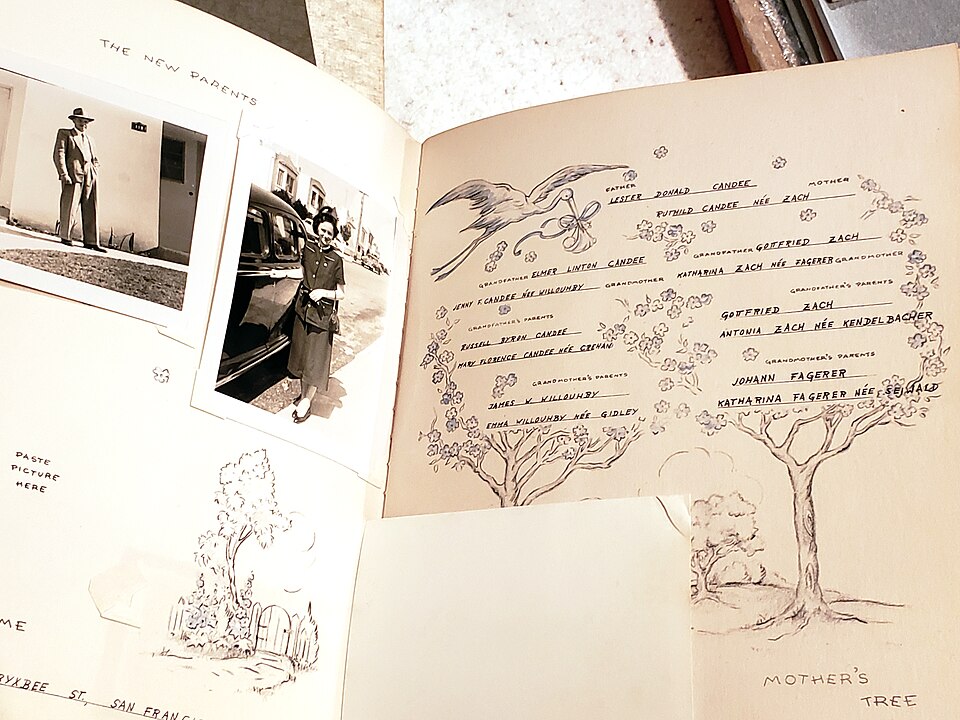 THE NEW PARENTS
PASTE
PICTURE
HERE
ME
RYXBEE ST., SAN FRANCI
FATHER
LESTER DONALD CANDEE
MOTHER
RUTHILD CANDEE NÉE ZACH
GRANDFATHER ELMER LINTON CANDEE
JENNY F. CANDEE NÉE WILLOUHBY GRANDMOTHER
GRANDFATHER'S PARENTS
RUSSELL BYRON CANDEE
MARY FLORENCE CANDEE NÉE
GRANDMOTHER'S PARENTS
JAMES W. WILLOUHBY
EMMA WILLOUHBY NÉE GIDLEY
GRANDFATHER GOTTFRIED ZACH
KATHARINA ZACH NÉE FAGERER GRANDMOTHER
GRANDFATHER'S PARENTS
GOTTFRIED ZACH
ANTONIA ZACH NÉE KENDELBACHER
GRANDMOTHER'S PARENTS
JOHANN FAGERER
KATHARINA FAGERER NÉE
MOTHER'S
TREE